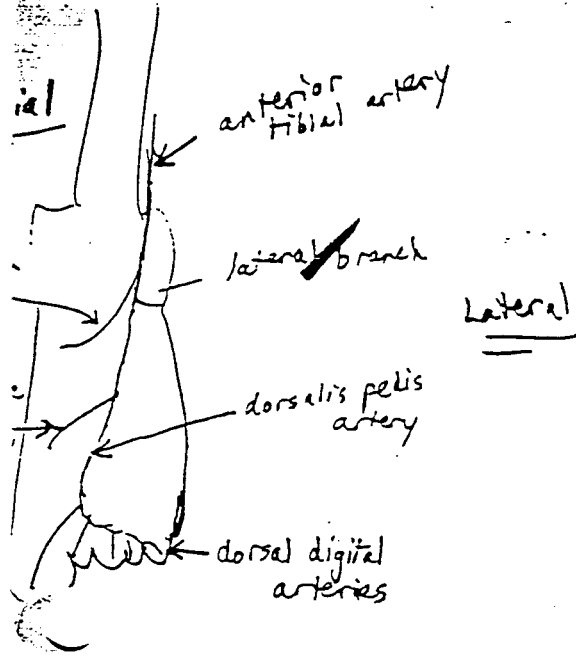 ial
anterior
tibial artery
lateral branch
Lateral
dorsalis pedis
artery
dorsal digital
arteries